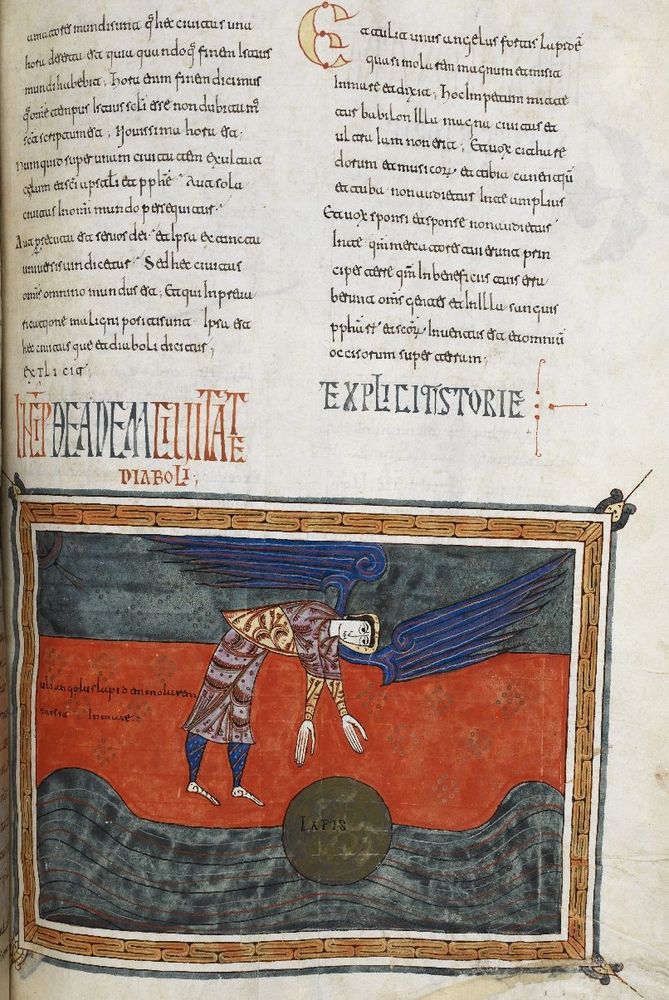 amatores mundi sunt q hec civitas una
hora deserta est quia quandoq finem istius
mundi habebit; hora enim finem dicimus
q ome tempus istius scli esse non dubitamr
sca scriptum est; Novissima hora est;
Numquid super unam civitatem exultant
celum et sci apstli et pphe Aut sola
civitas in omi mundo persequitur
Aut psecuta est servos dei et ipsa ex
universis vindicetur Sed hec civitas
omis omnino mundus est; et qui in preva
ricatione maligni positi sunt Ipsa est
hec civitas que et diaboli dicitur;
EXPLICIT
INCIP DE EADEM CIVITATE
DIABOLI;
Et tulit unus angelus fortis lapidem
quasi molarem magnum et misit
in mare et dixit; hoc impetum mittetur
civitas babilon illa magna civitas et
ultra iam non erit; Et vox citharedorum
et musicor et tibia canentium
et tuba non audietur in te amplius
Et vox sponsi et sponse non audietur
in te qm mercatores tui erunt prin
cipes terre qm in beneficiis tuis erra
berunt oms gentes et in illa sanguis
pphar et scor inventus est et omniu
occisorum super terram;
EXPLICIT ISTORIE
ubi angelus lapidem molarem
misit in mare
LAPIS